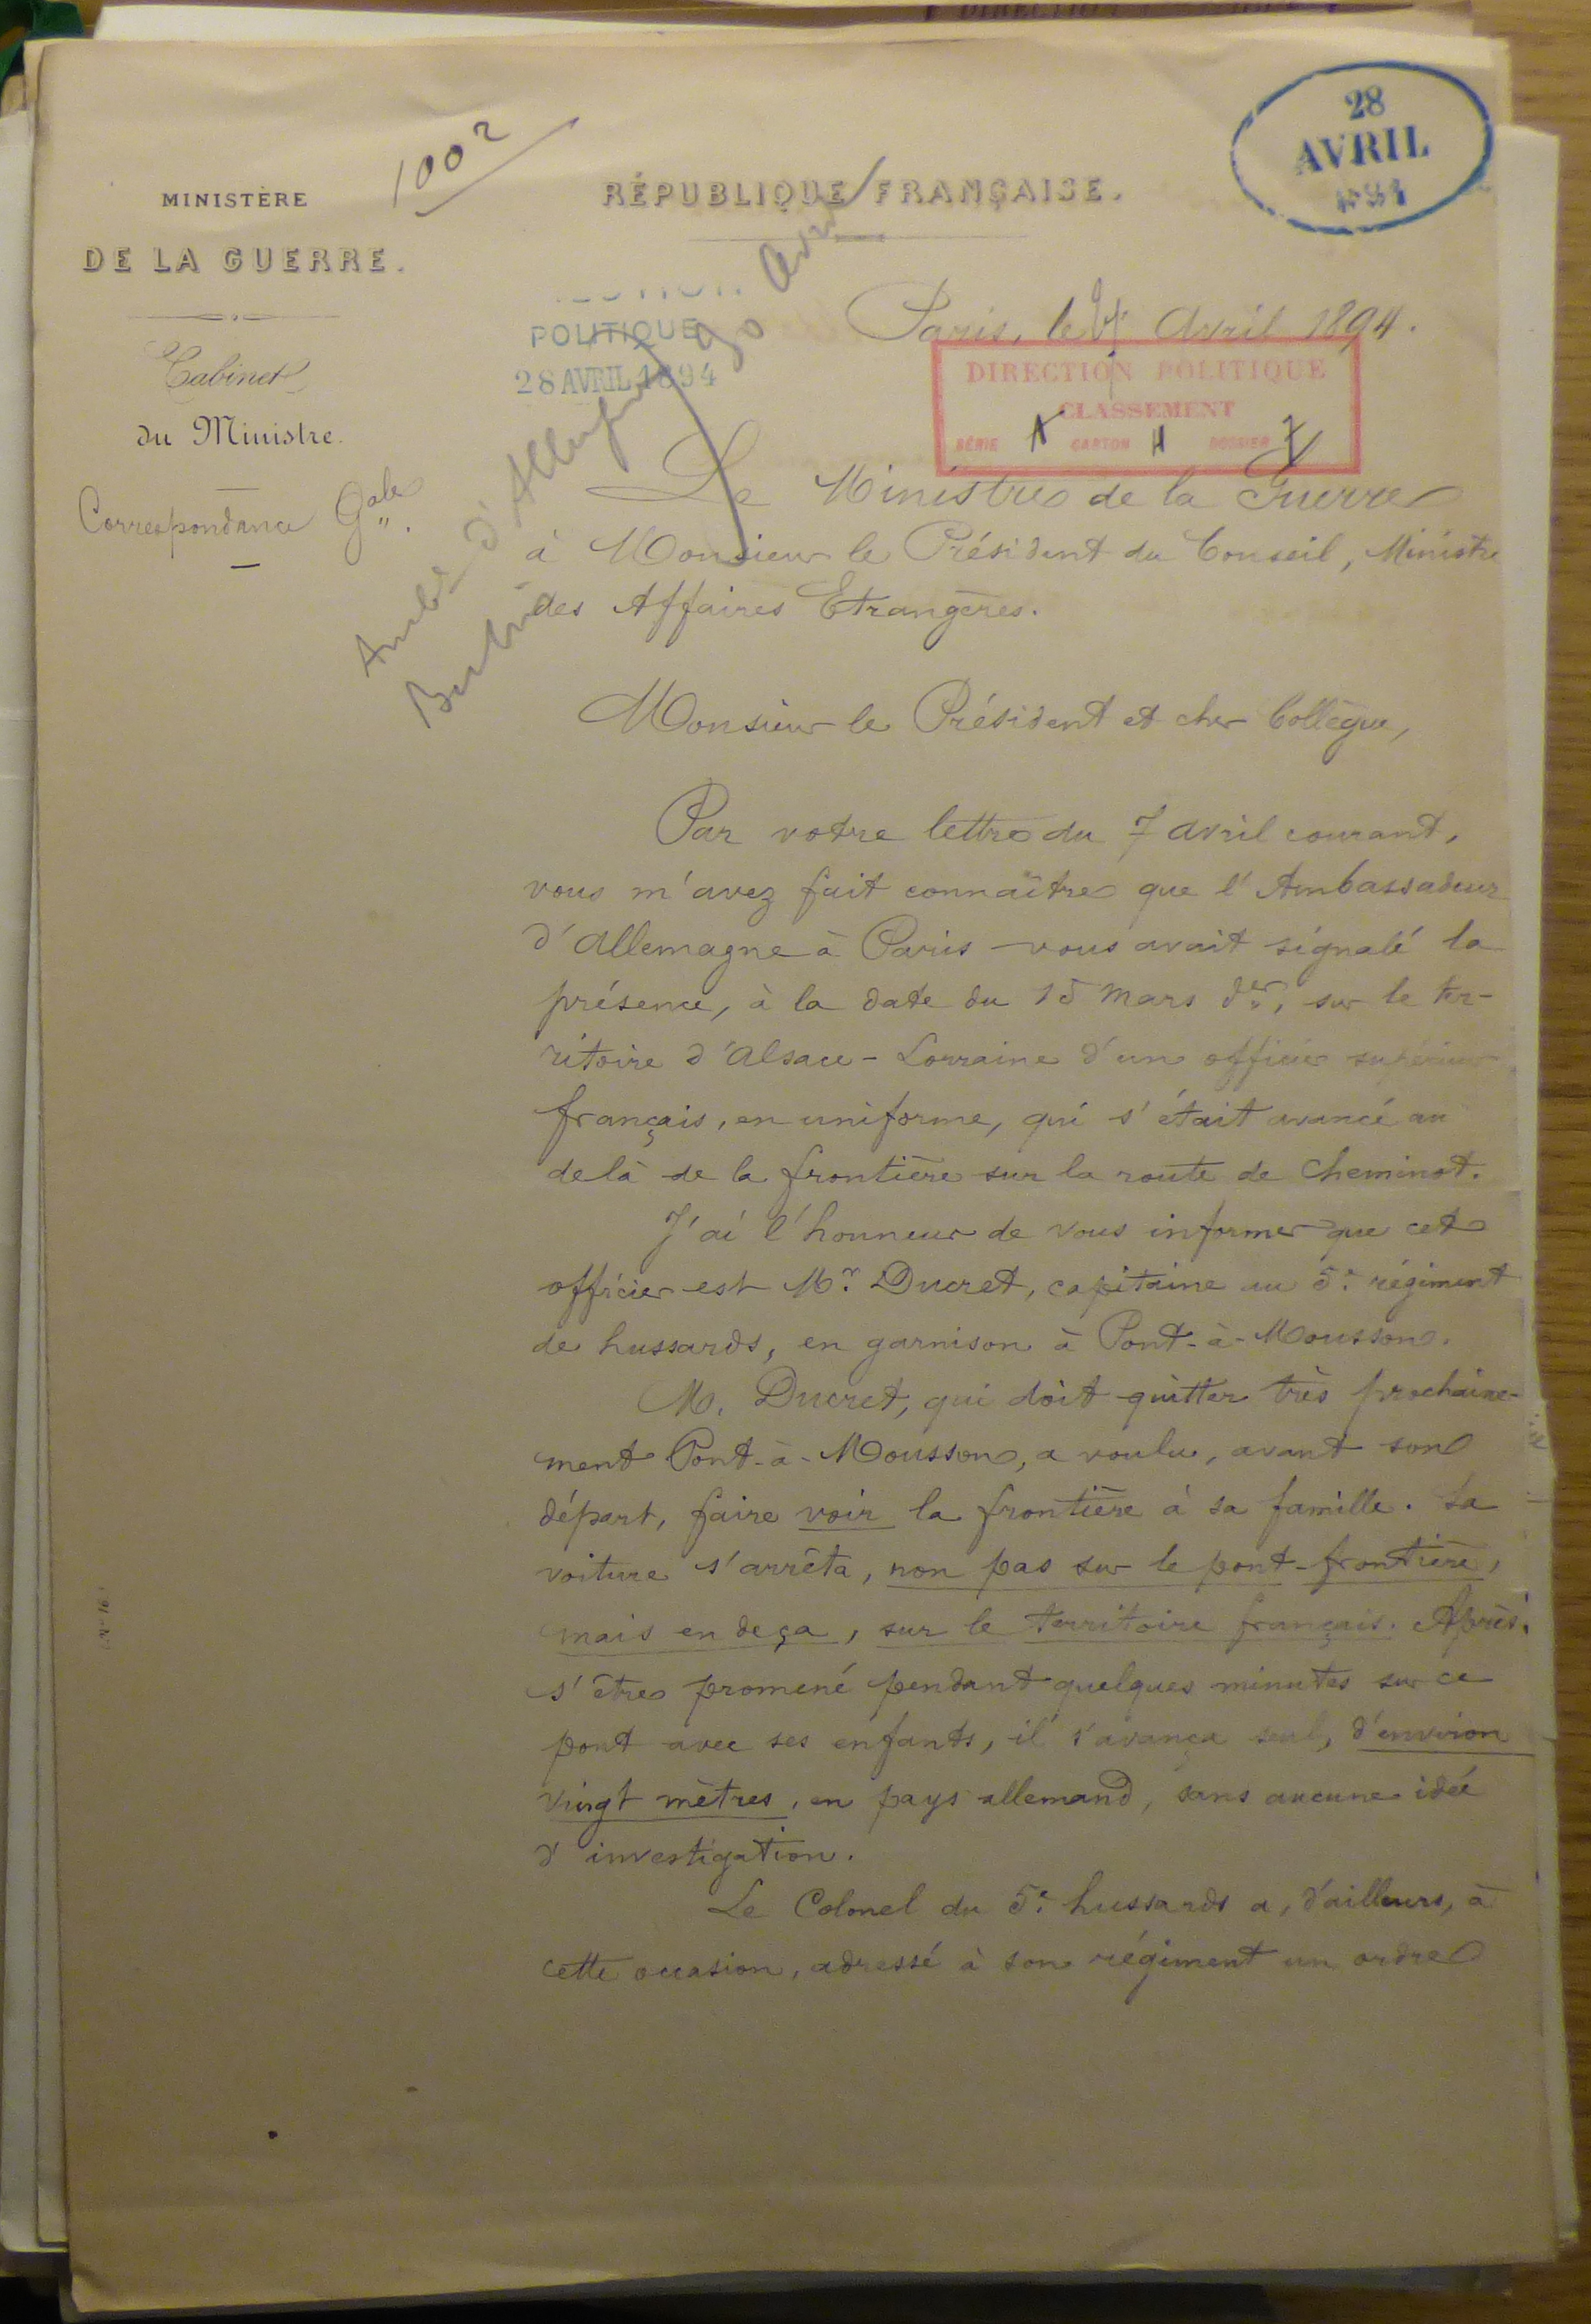 1002
28
AVRIL
1894
MINISTÈRE
DE LA GUERRE.
Cabinet
du Ministre.
Correspondance Gale.
RÉPUBLIQUE FRANÇAISE.
POLITIQUE
28 AVRIL 1894
Paris, le Avril 1894.
DIRECTION POLITIQUE
CLASSEMENT
SÉRIE A CARTON H DOSSIER 7
Amb. d'Allemagne 30 Avril
Berlin
Le Ministre de la Guerre
à Monsieur le Président du Conseil, Ministre
des Affaires Etrangères.
Monsieur le Président et cher Collègue,
Par votre lettre du 7 avril courant,
vous m'avez fait connaître que l'Ambassadeur
d'Allemagne à Paris vous avait signalé la
présence, à la date du 15 Mars der, sur le ter-
ritoire d'Alsace-Lorraine d'un officier supérieur
français, en uniforme, qui s'était avancé au
delà de la frontière sur la route de Cheminot.
J'ai l'honneur de vous informer que cet
officier est Mr. Ducret, capitaine au 5e régiment
de hussards, en garnison à Pont-à-Mousson.
M. Ducret, qui doit quitter très prochaine-
ment Pont-à-Mousson, a voulu, avant son
départ, faire voir la frontière à sa famille. Sa
voiture s'arrêta, non pas sur le pont-frontière,
mais en deça, sur le territoire français. Après
s'être promené pendant quelques minutes sur ce
pont avec ses enfants, il s'avança seul, d'environ
vingt mètres, en pays allemand, sans aucune idée
d'investigation.
Le Colonel du 5e hussards a, d'ailleurs, à
cette occasion, adressé à son régiment un ordre